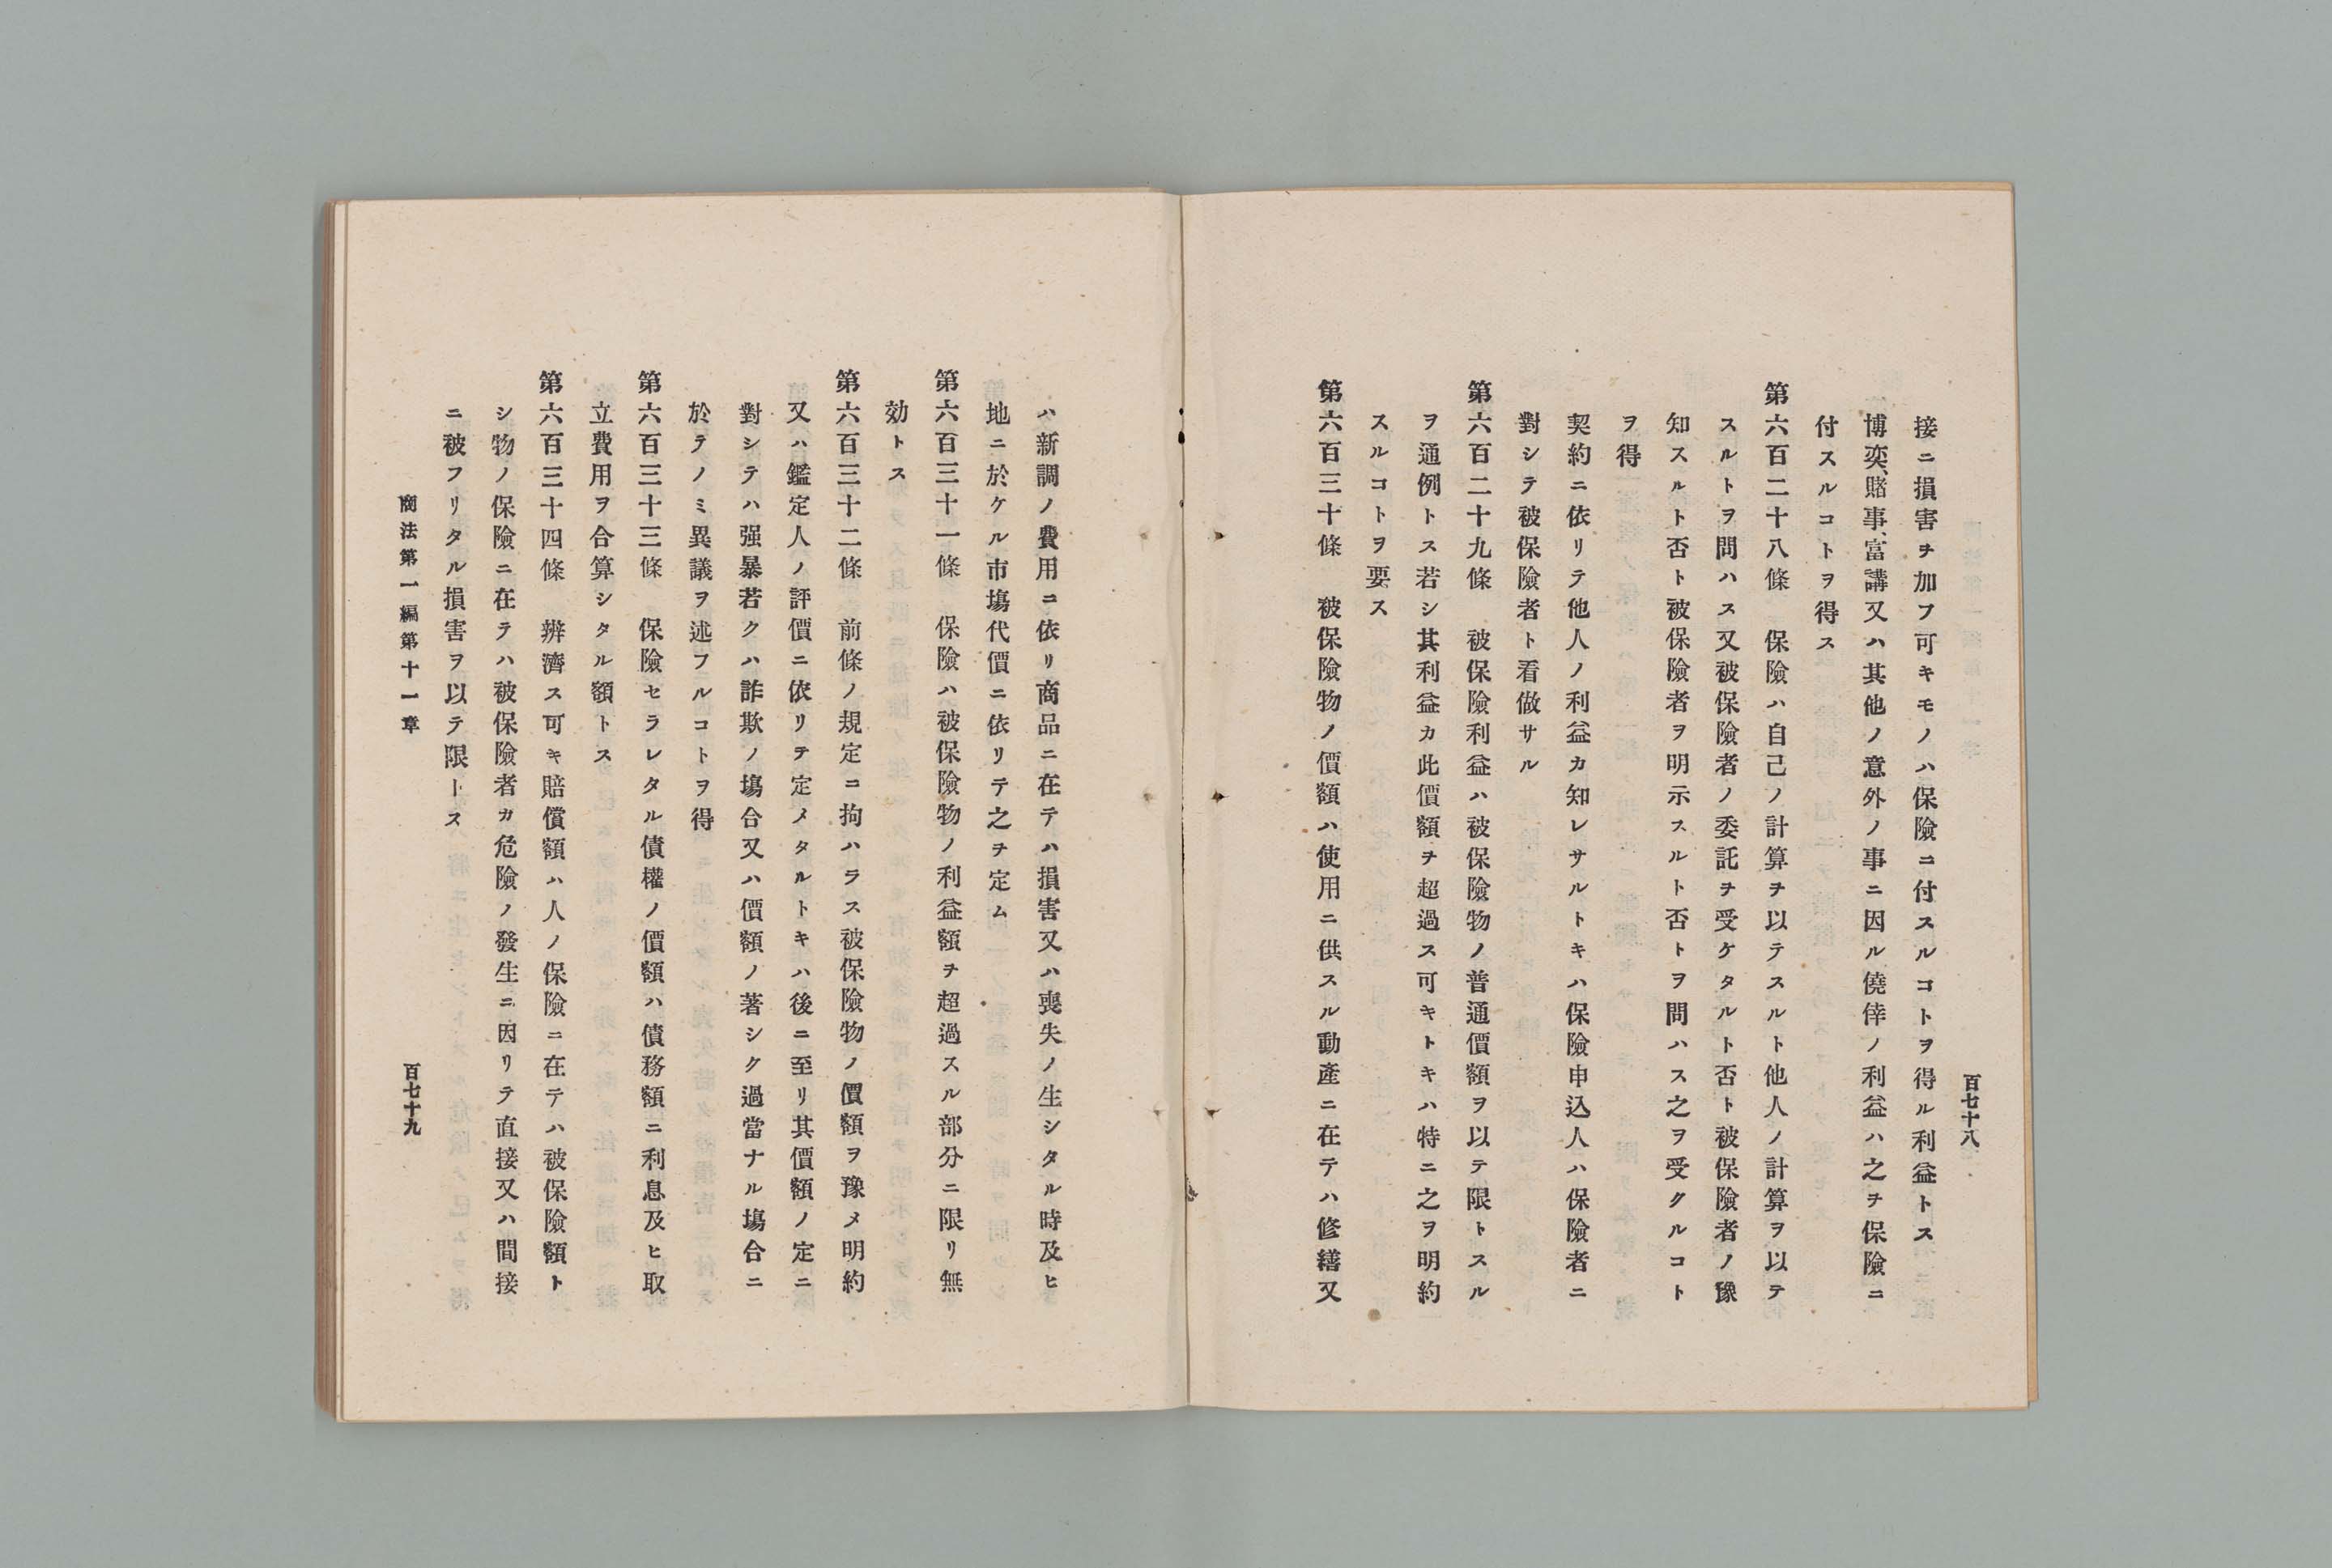 百七十八
接ニ損害ヲ加フ可キモノハ保險ニ付スルコトヲ得ル利益トス
博奕、賭事、富講又ハ其他ノ意外ノ事ニ因ル僥倖ノ利益ハ之ヲ保險ニ
付スルコトヲ得ス
第六百二十八條　保險ハ自己ノ計算ヲ以テスルト他人ノ計算ヲ以テ
スルトヲ問ハス又被保險者ノ委託ヲ受ケタルト否ト被保險者ノ豫
知スルト否ト被保險者ヲ明示スルト否トヲ問ハス之ヲ受クルコト
ヲ得
契約ニ依リテ他人ノ利益カ知レサルトキハ保險申込人ハ保險者ニ
對シテ被保險者ト看做サル
第六百二十九條　被保險利益ハ被保險物ノ普通價額ヲ以テ限トスル
ヲ通例トス若シ其利益カ此價額ヲ超過ス可キトキハ特ニ之ヲ明約
スルコトヲ要ス
第六百三十條　被保險物ノ價額ハ使用ニ供スル動產ニ在テハ修繕又
ハ新調ノ費用ニ依リ商品ニ在テハ損害又ハ喪失ノ生シタル時及ヒ
地ニ於ケル市塲代價ニ依リテ之ヲ定ム
第六百三十一條　保險ハ被保險物ノ利益額ヲ超過スル部分ニ限リ無
効トス
第六百三十二條　前條ノ規定ニ拘ハラス被保險物ノ價額ヲ豫メ明約
又ハ鑑定人ノ評價ニ依リテ定メタルトキハ後ニ至リ其價額ノ定ニ
對シテハ强暴若クハ詐欺ノ塲合又ハ價額ノ著シク過當ナル塲合ニ
於テノミ異議ヲ述フルコトヲ得
第六百三十三條　保險セラレタル債權ノ價額ハ債務額ニ利息及ヒ取
立費用ヲ合算シタル額トス
第六百三十四條　辨濟ス可キ賠償額ハ人ノ保險ニ在テハ被保險額ト
シ物ノ保險ニ在テハ被保險者カ危險ノ發生ニ因リテ直接又ハ間接
ニ被フリタル損害ヲ以テ限トス
商法第一編第十一章
百七十九